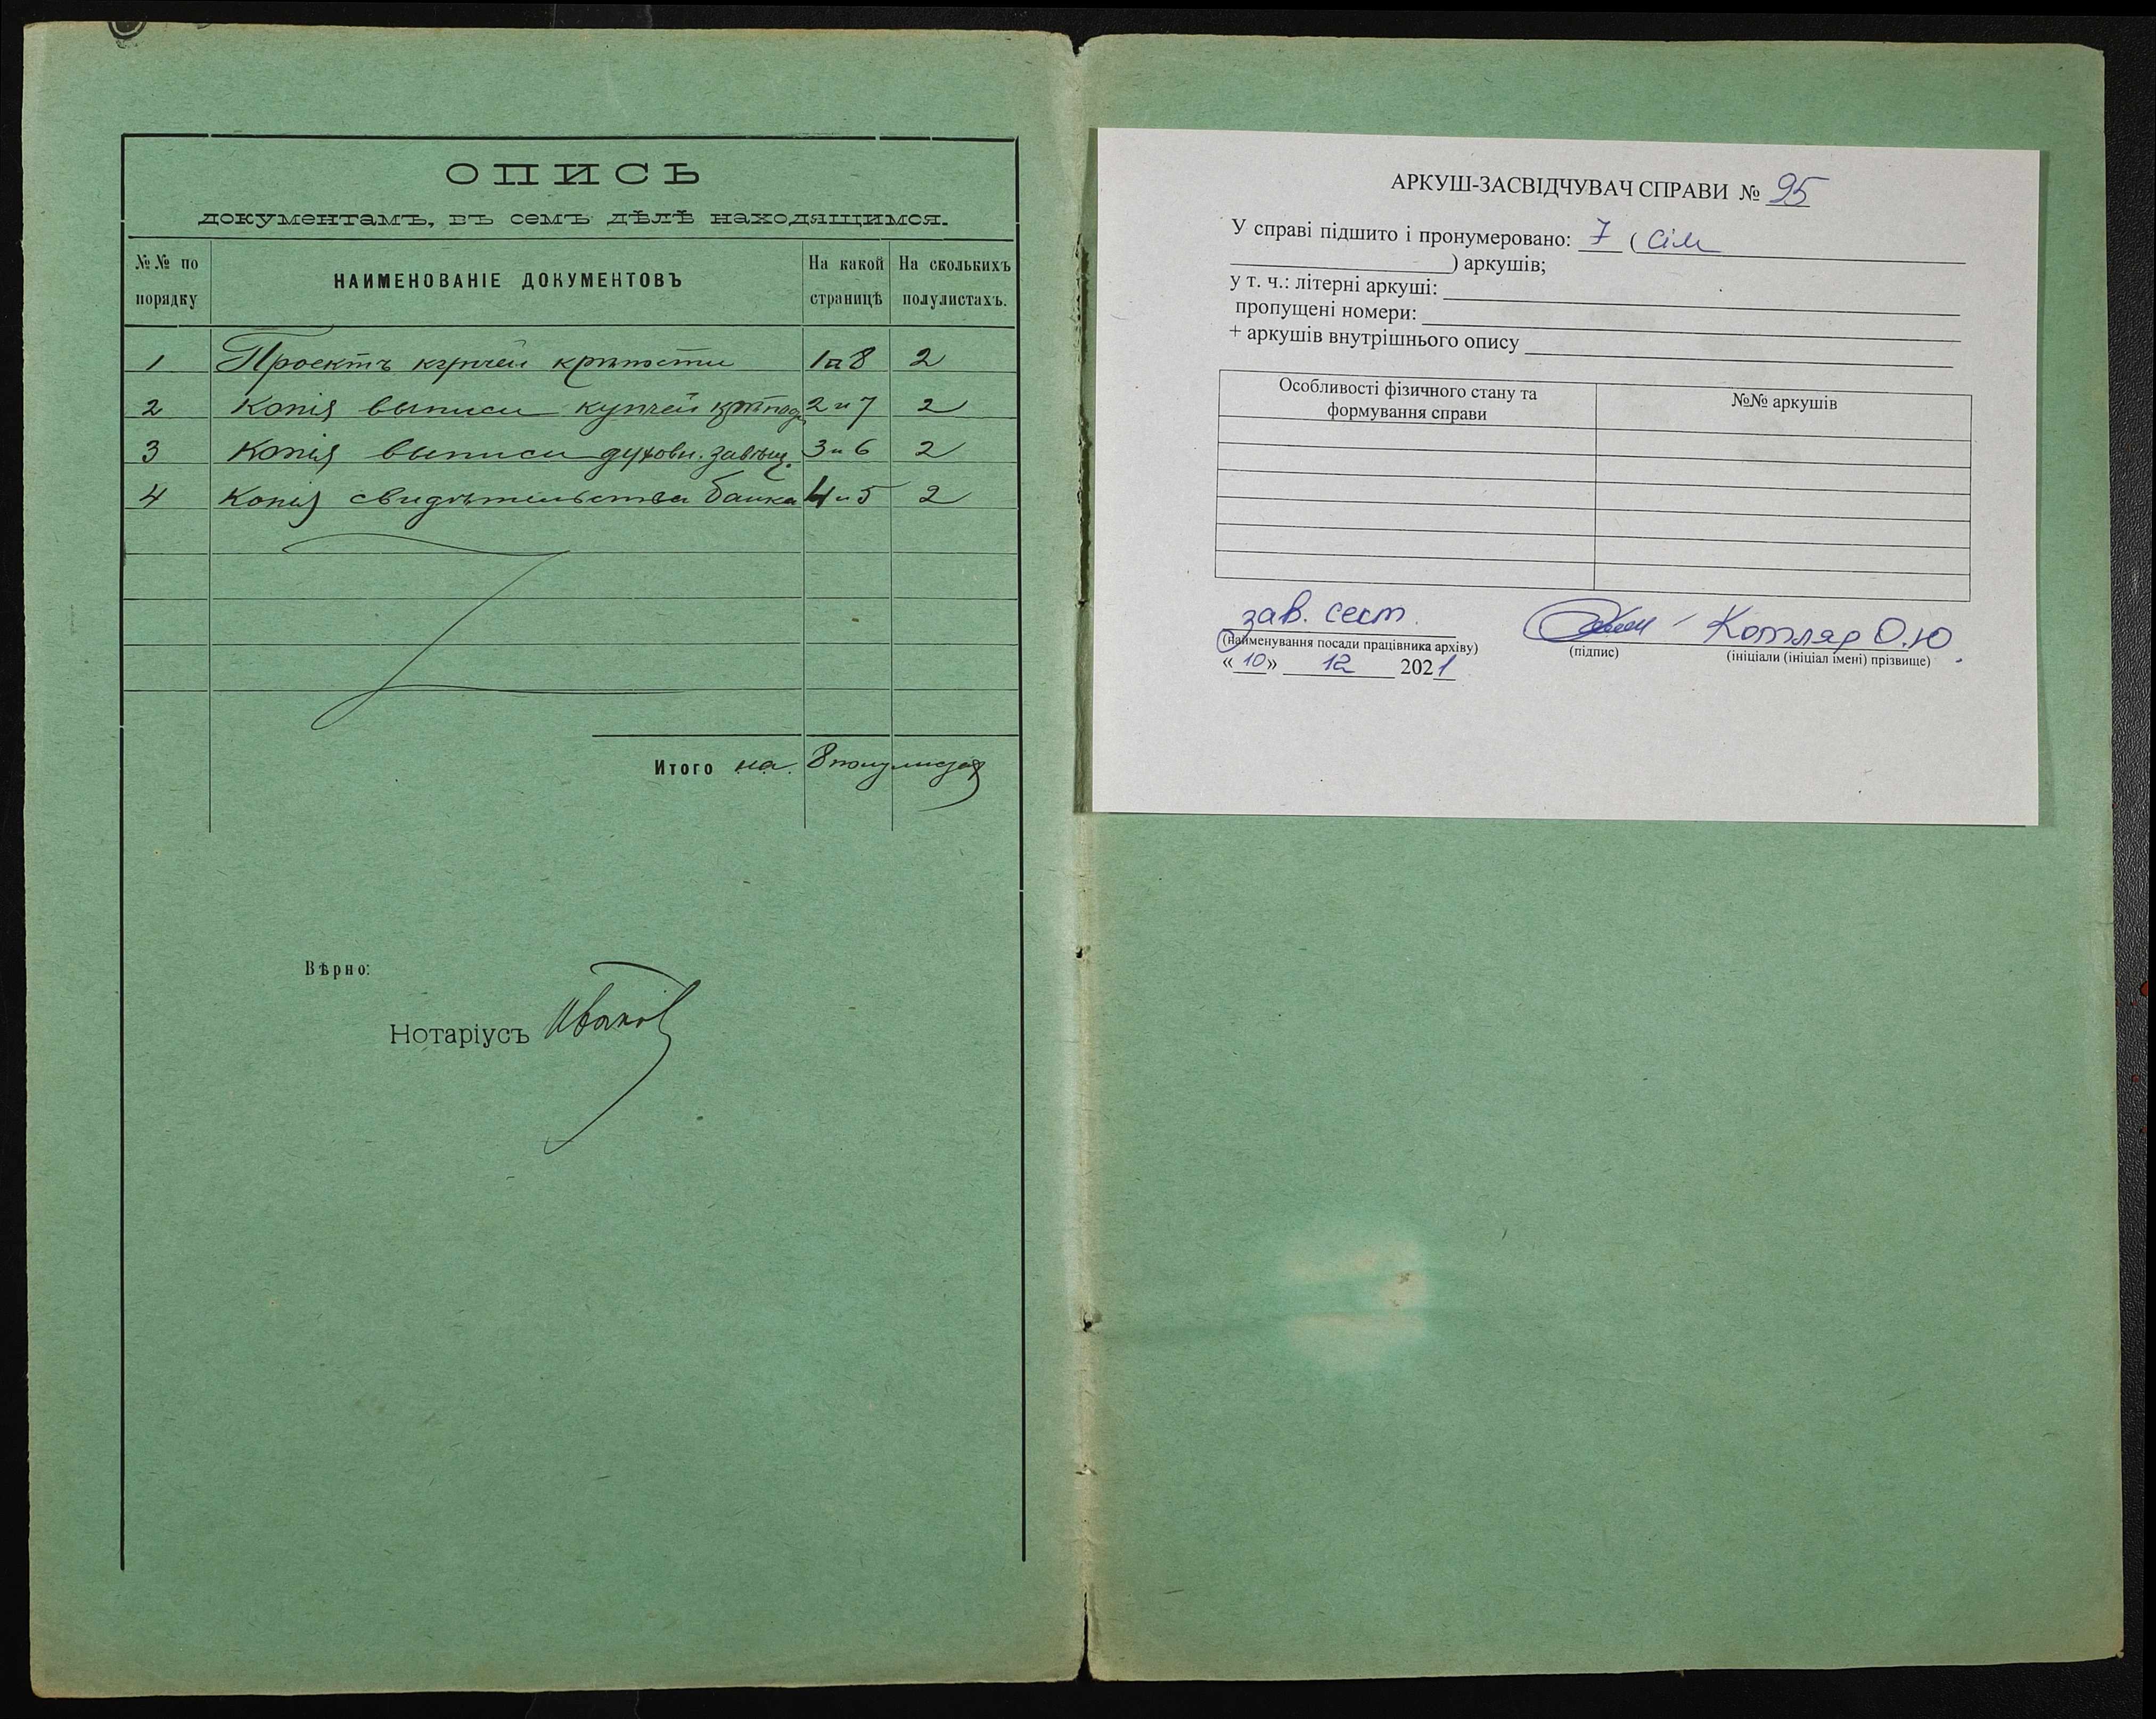 ОПИСЬ
документамъ, въ семъ дѣлѣ находящимся.
№№ по порядку
НАИМЕНОВАНІЕ ДОКУМЕНТОВЪ
На какой страницѣ
На сколькихъ полулистахъ.
1 Проектъ купчей крѣпости 1 и 8 2
2 Копія выписи купчей 2 и 7 2
3 Копія выписи духовн. завѣщ. 3 и 6 2
4 Копія свидѣтельства банка 4 и 5 2
Итого на 8 полулистах
Вѣрно:
Нотаріусъ Иванов
АРКУШ-ЗАСВІДЧУВАЧ СПРАВИ № 95
У справі підшито і пронумеровано: 7 ( сім
) аркушів;
у т. ч.: літерні аркуші:
пропущені номери:
+ аркушів внутрішнього опису
Особливості фізичного стану та
формування справи
№№ аркушів
зав. сект.
Котляр О.Ю.
(найменування посади працівника архіву)
(підпис)
(ініціали (ініціал імені) прізвище)
« 10 » 12 2021